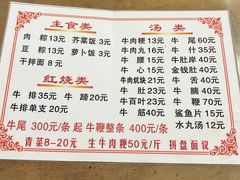 主食类
肉粽13元 芥菜饭3元
豆粽13元 萝卜饭3元
干拌面8元
红烧类
牛排35元 牛蹄20元
牛排单支20元
汤类
牛肉粳13元 牛尾60元
牛肉13元 牛什35元
牛腰15元 牛肚岸40元
牛心15元 金钱肚40元
牛肉焿12元 牛筋20元
牛肚23元 牛舌20元
牛百叶23元 牛鞭50元
牛筋20元 鲨鱼片15元
水丸汤12元
牛尾300元/条起 牛鞭整条400元/条
青菜8—20元 生牛肉粳50元/斤 拼盘面议